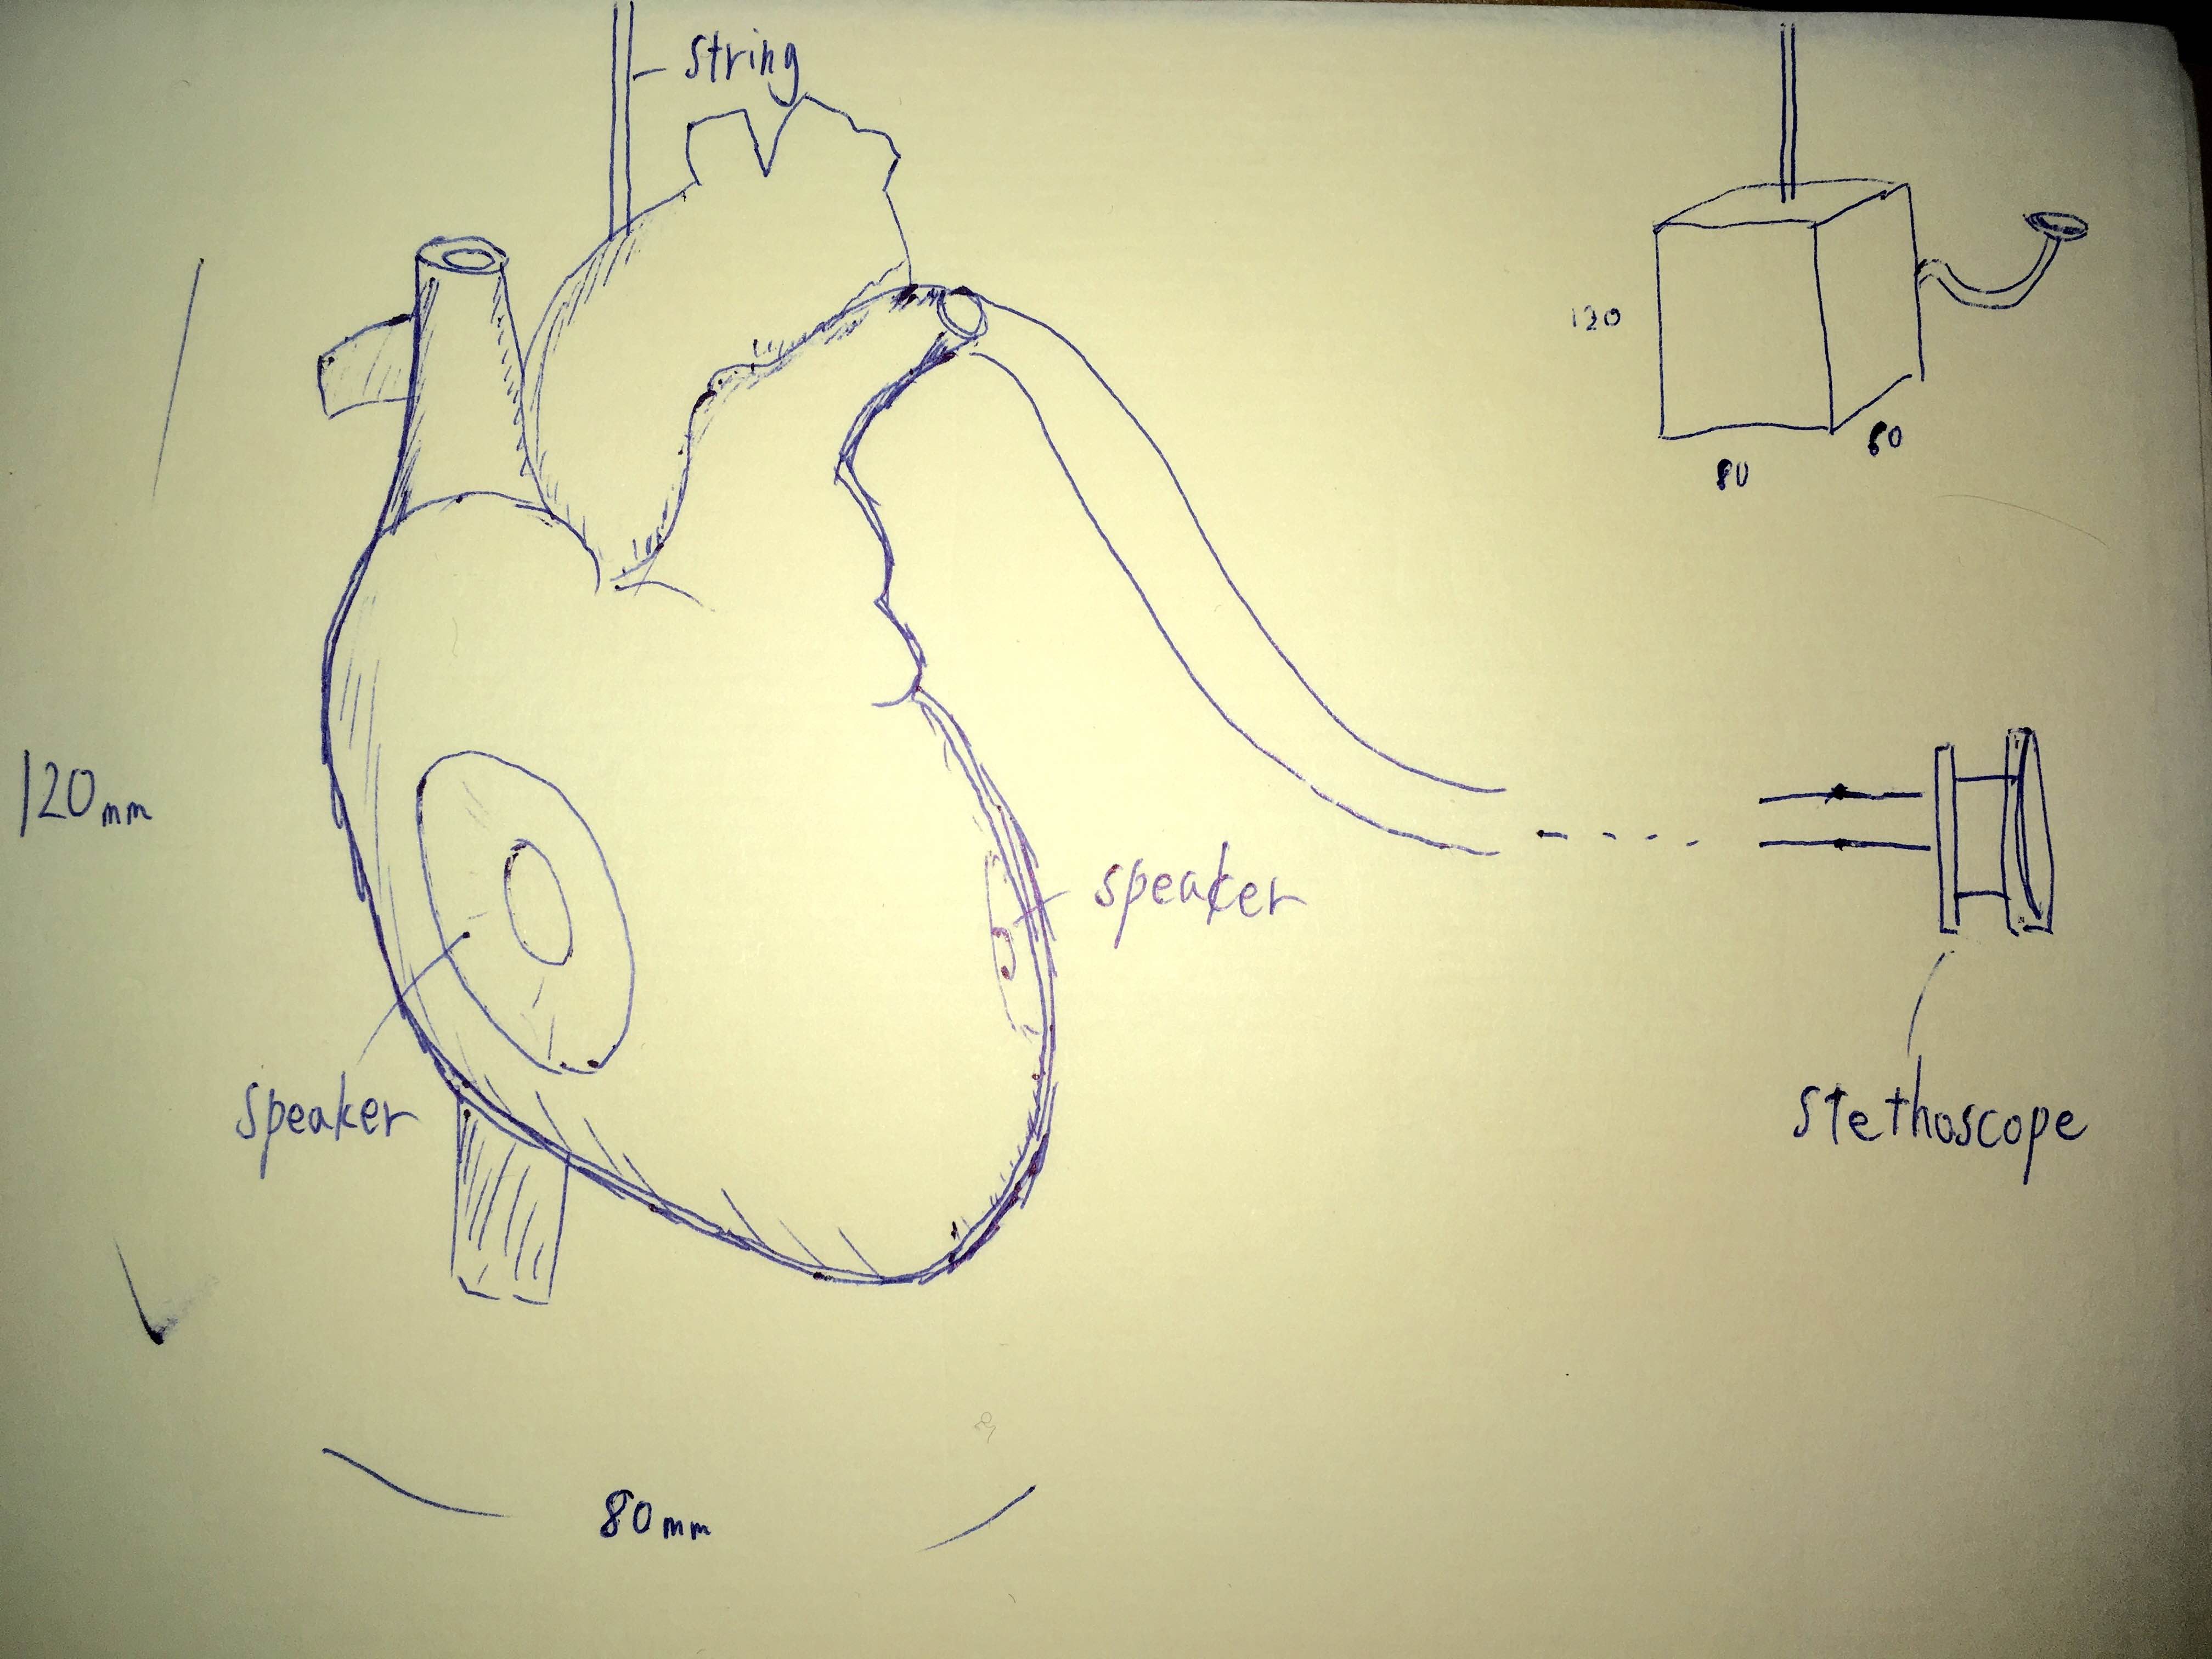 string
120
80
60
120mm
speaker
speaker
stethoscope
80mm